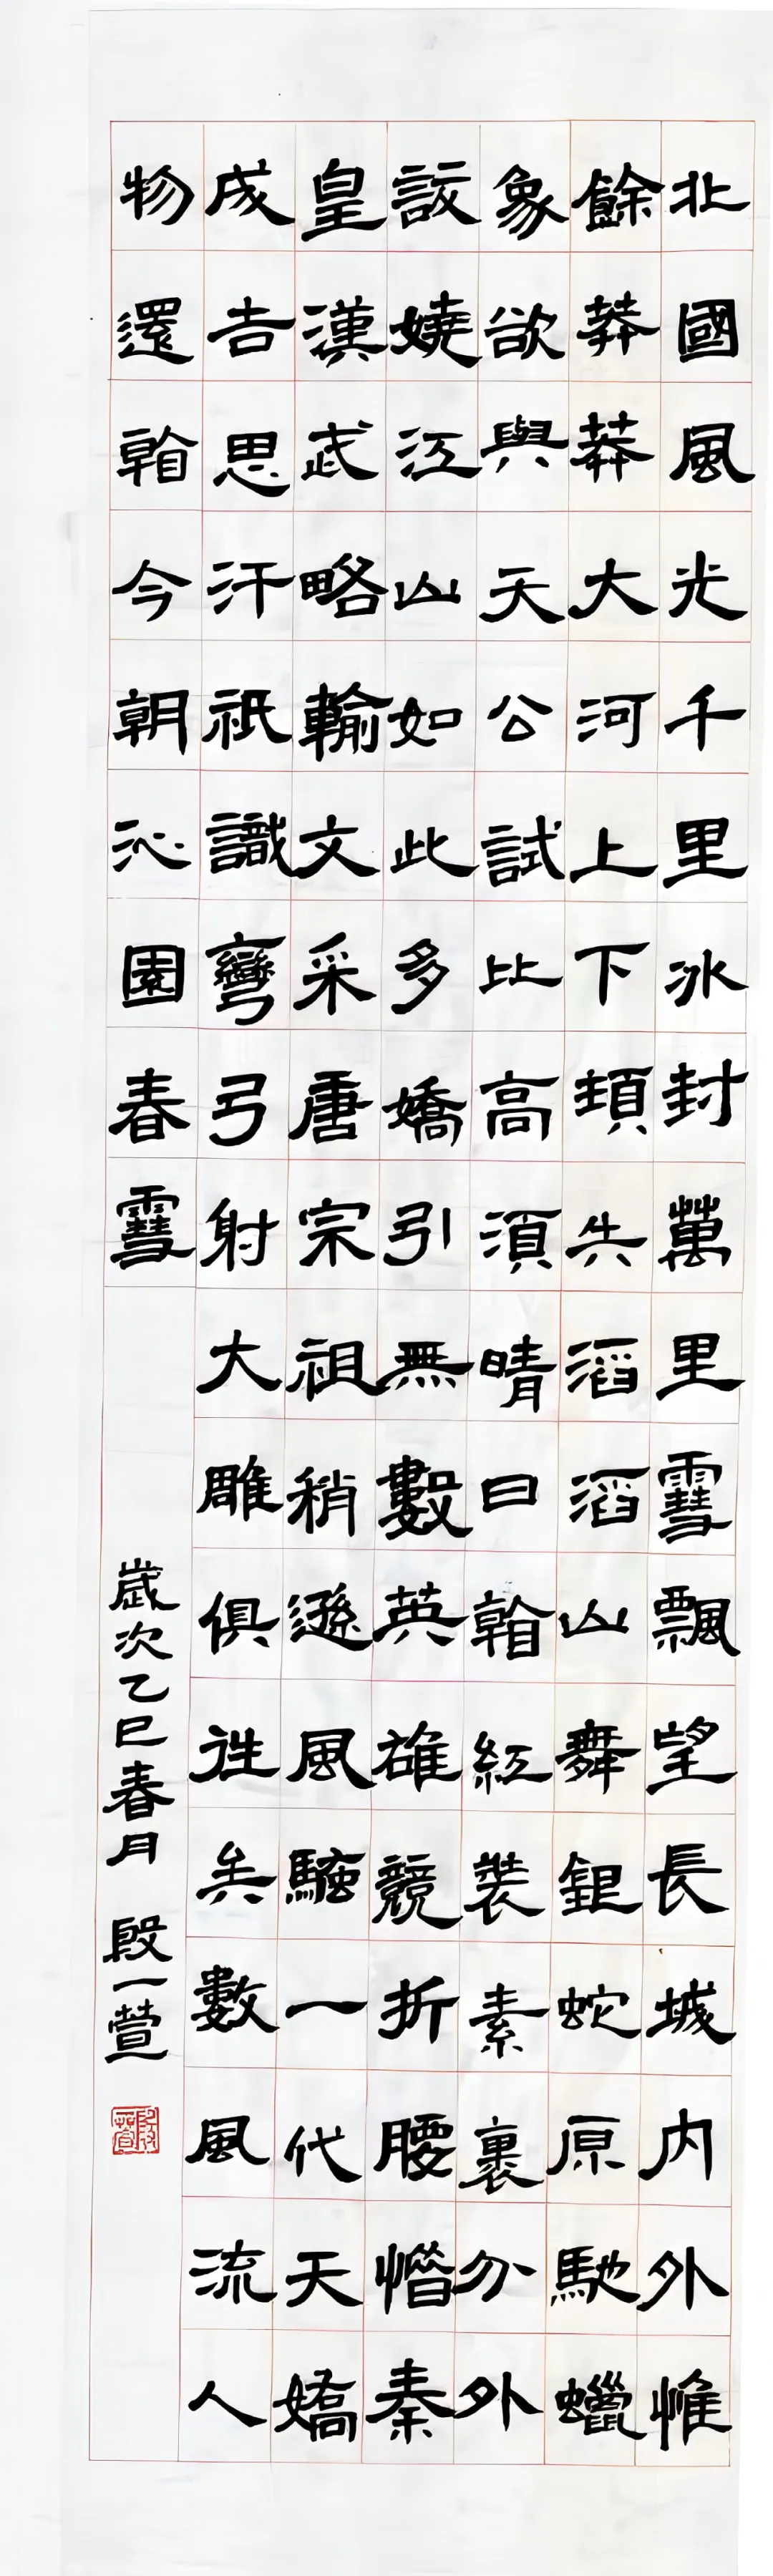 北國風光千里冰封萬里雪飄望長城内外惟
餘莽莽大河上下頓失滔滔山舞銀蛇原馳蠟
象欲與天公試比高須晴日看紅裝素裹分外
設嬈江山如此多嬌引無數英雄競折腰惜秦
皇漢武略輸文采唐宗宋祖稍遜風騷一代天嬌
成吉思汗祇識彎弓射大雕俱往矣數風流人
物還看今朝沁園春雪
歲次乙巳春月 段一萱
段一萱